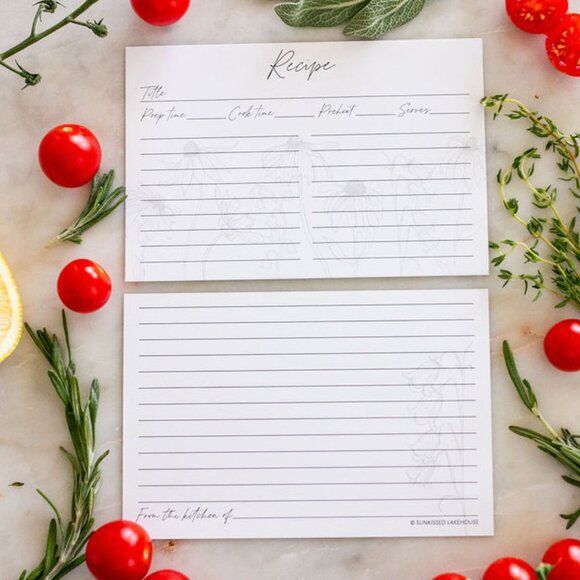 Recipe
Title
Prep time Cook time Preheat Serves
From the kitchen of
© SUNKISSED LAKEHOUSE